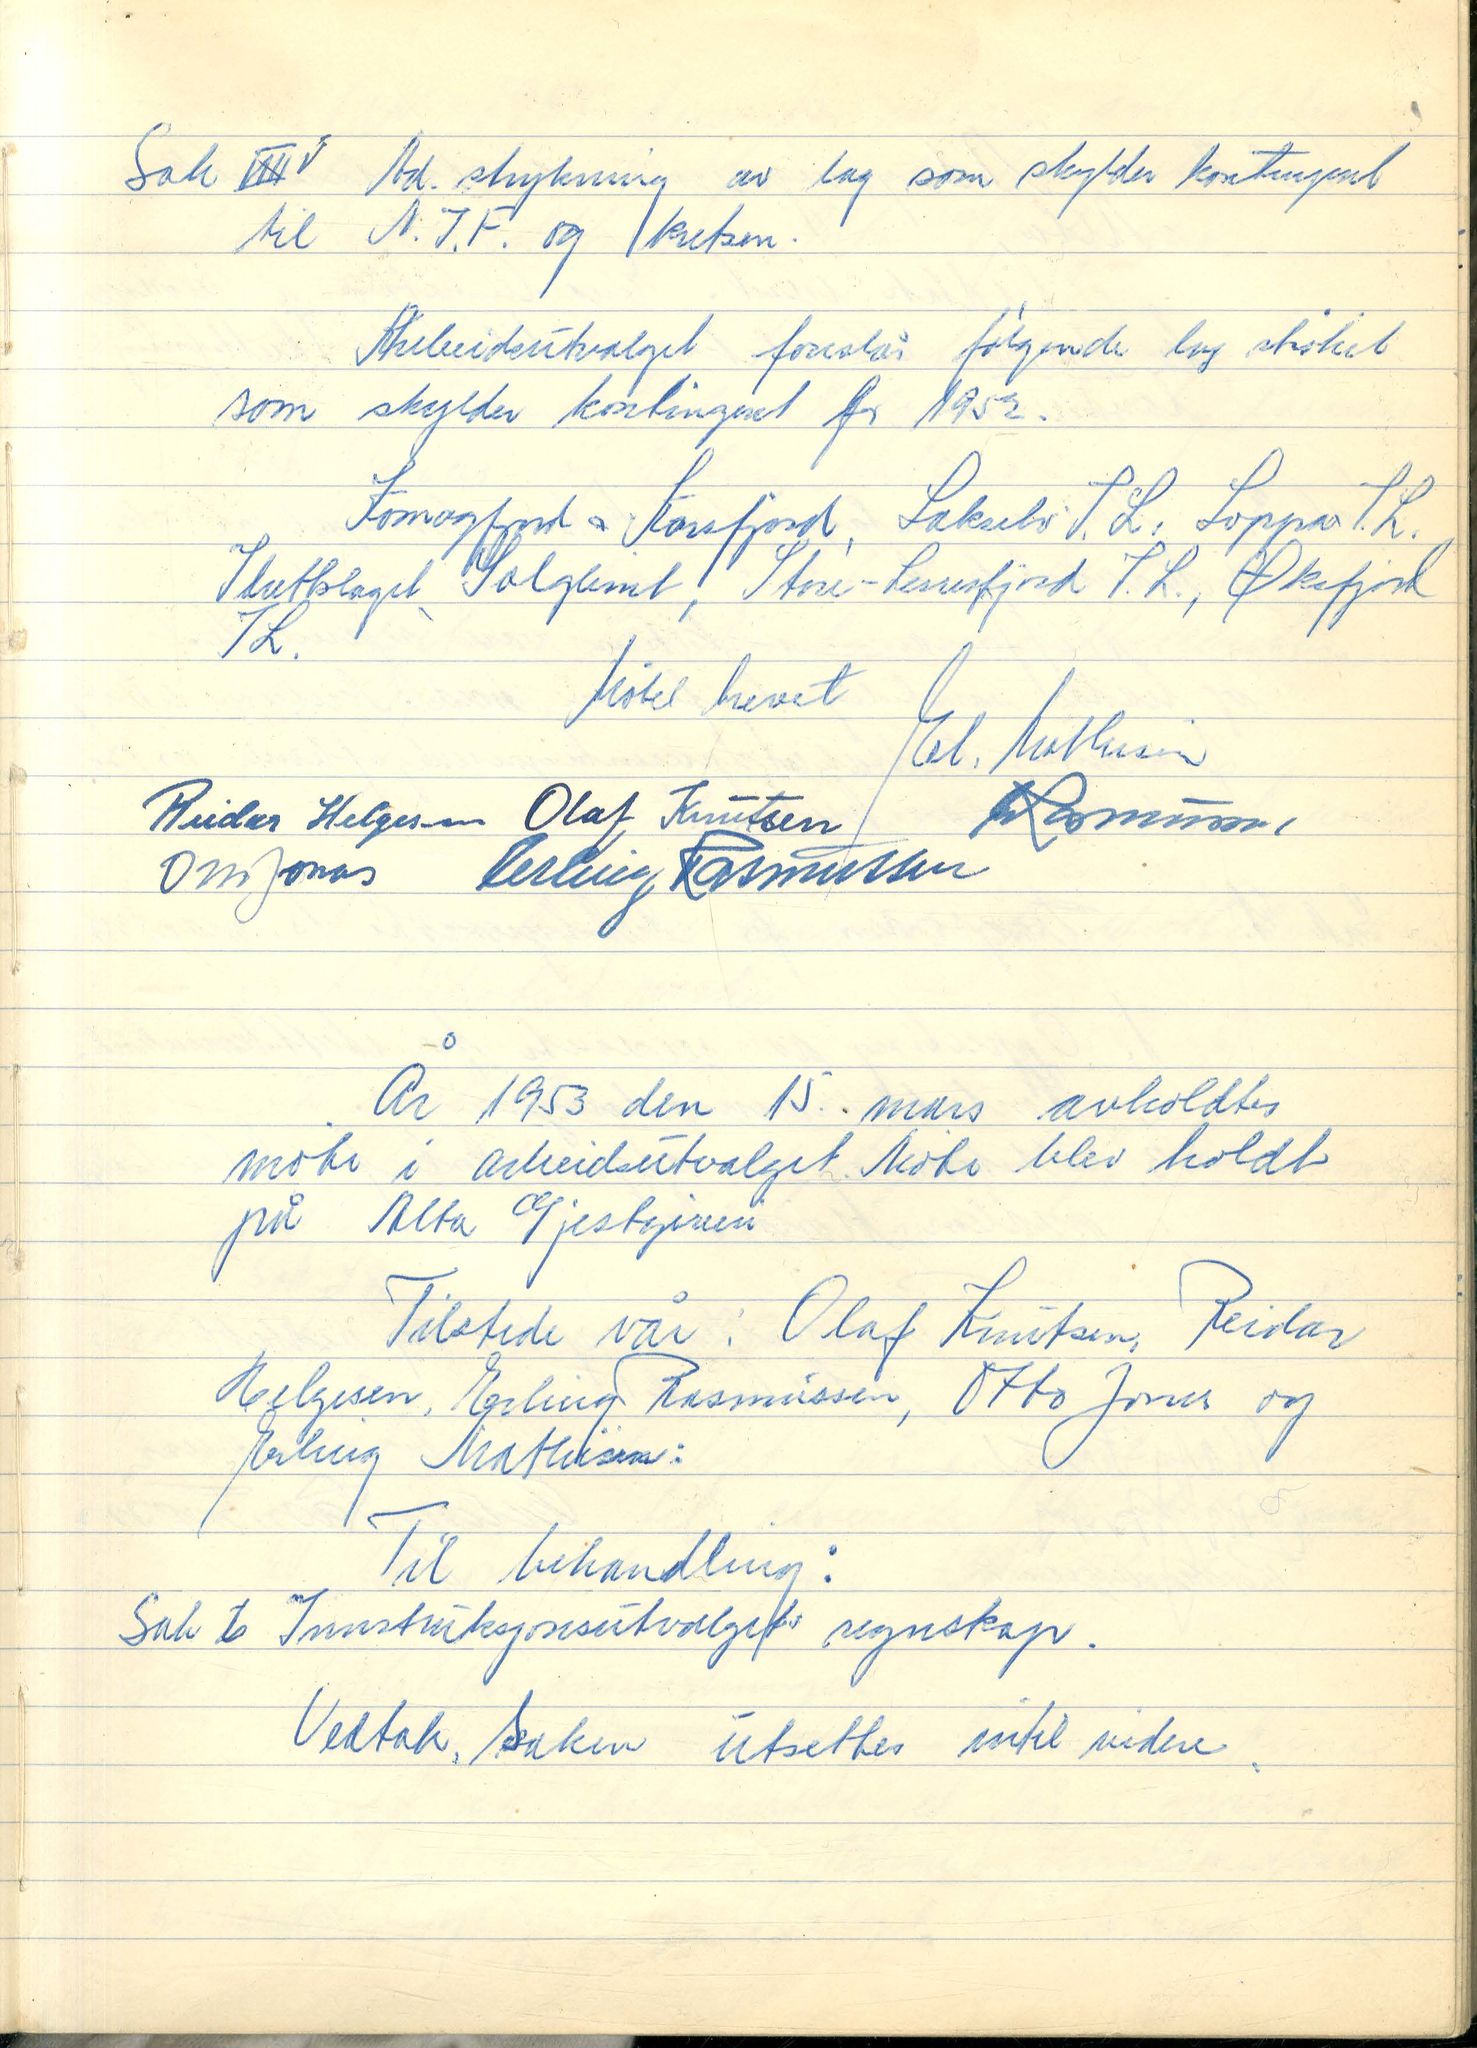 Sak V Ad. strykning av lag som skylder kontingent
til N.I.F. og kretsen.
Arbeidsutvalget foreslår følgende lag strøket
som skylder kontingent for 1952.
Komagfjord & Korsfjord, Lakselv I.L., Loppa I.L.
Idrettslaget Solglimt, Store-Lerresfjord I.L., Øksfjord
I.L.
Møtet hevet
Erl. Mathisen
Reidar Helgesen Olaf Knutsen Rasmussen,
Otto Jonas Erling Rasmussen
År 1953 den 15. mars avholdtes
møte i arbeidsutvalget. Møte blev holdt
på Alta Gjestgiveri
Tilstede var: Olaf Knutsen, Reidar
Helgesen, Erling Rasmussen, Otto Jonas og
Erling Mathisen:
Til behandling:
Sak Innstruksjonsutvalgets regnskap.
Vedtak, Saken utsettes intil videre.